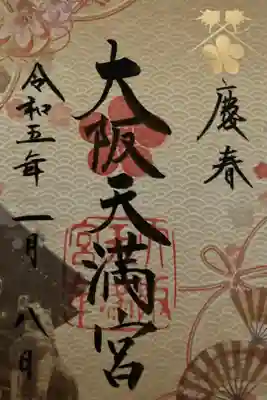 慶春
大阪天満宮
令和五年一月八日